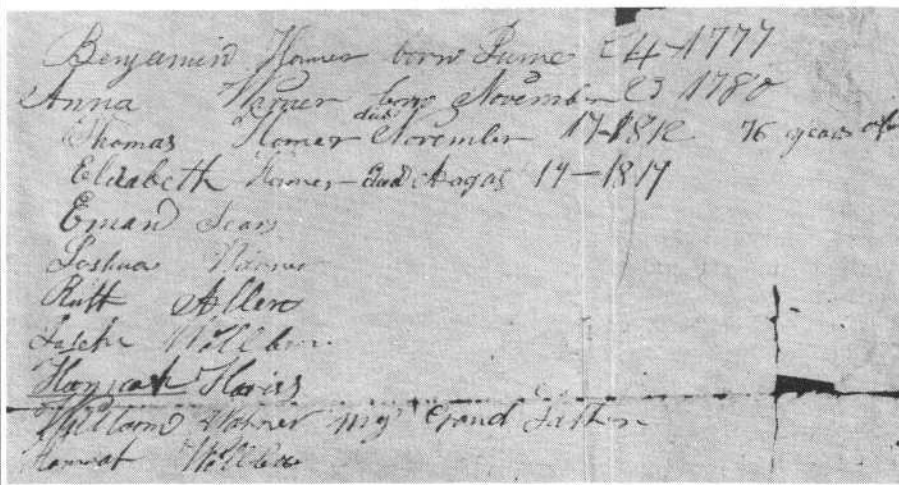 Benjamin Horner born June 24-1777
Anna Warner born November 23 1780
Thomas Horner died November 17-1812 76 years
Elizabeth Horner died Augas 14-1817
Eman Sears
Joshua Warner
Ruth Allen
Wellborn
Hannah Hariss
William Warner my Grand Father